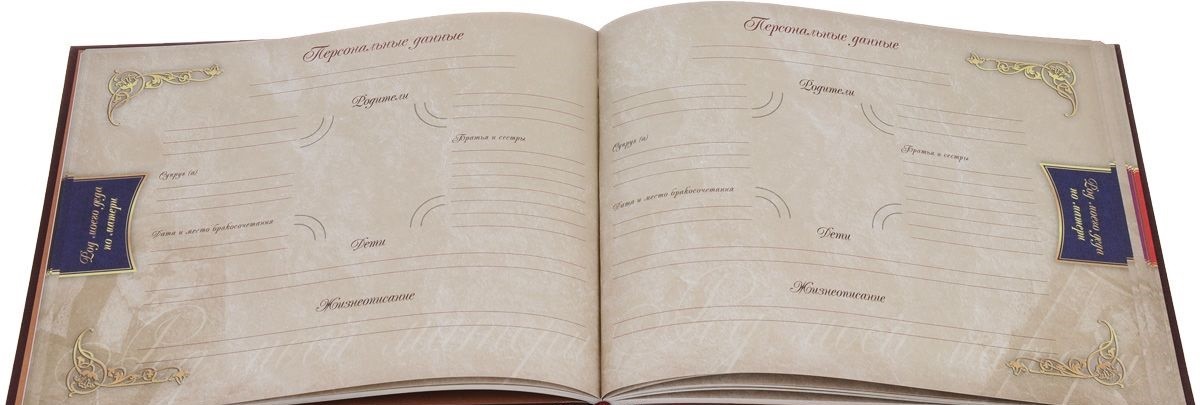 Персональные данные
Родители
Братья и сестры
Супруг (а)
Дата и место бракосочетания
Дети
Жизнеописание
Род моего деда
по матери
Персональные данные
Родители
Супруг (а)
Братья и сестры
Дата и место бракосочетания
Дети
Жизнеописание
Род моего деда
по матери